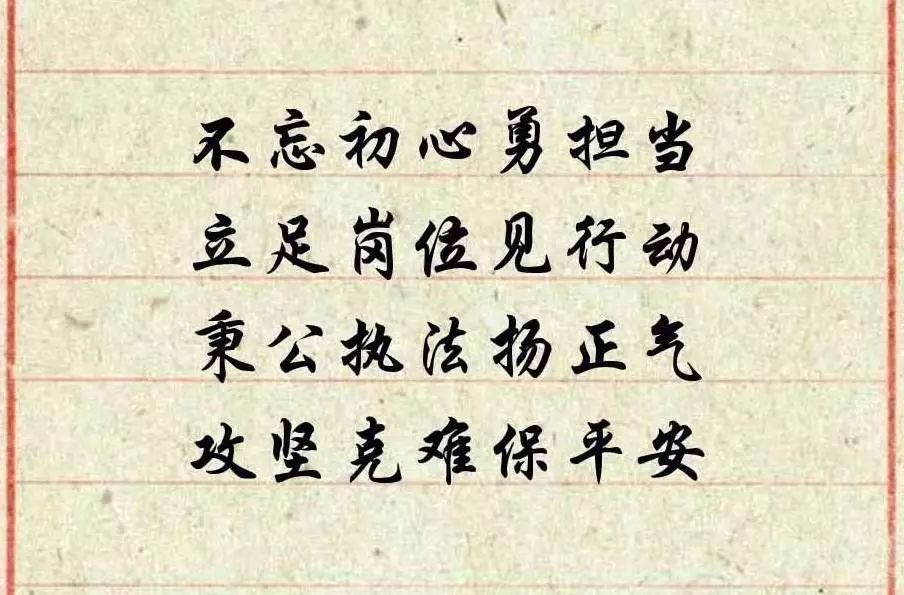 不忘初心勇担当
立足岗位见行动
秉公执法扬正气
攻坚克难保平安